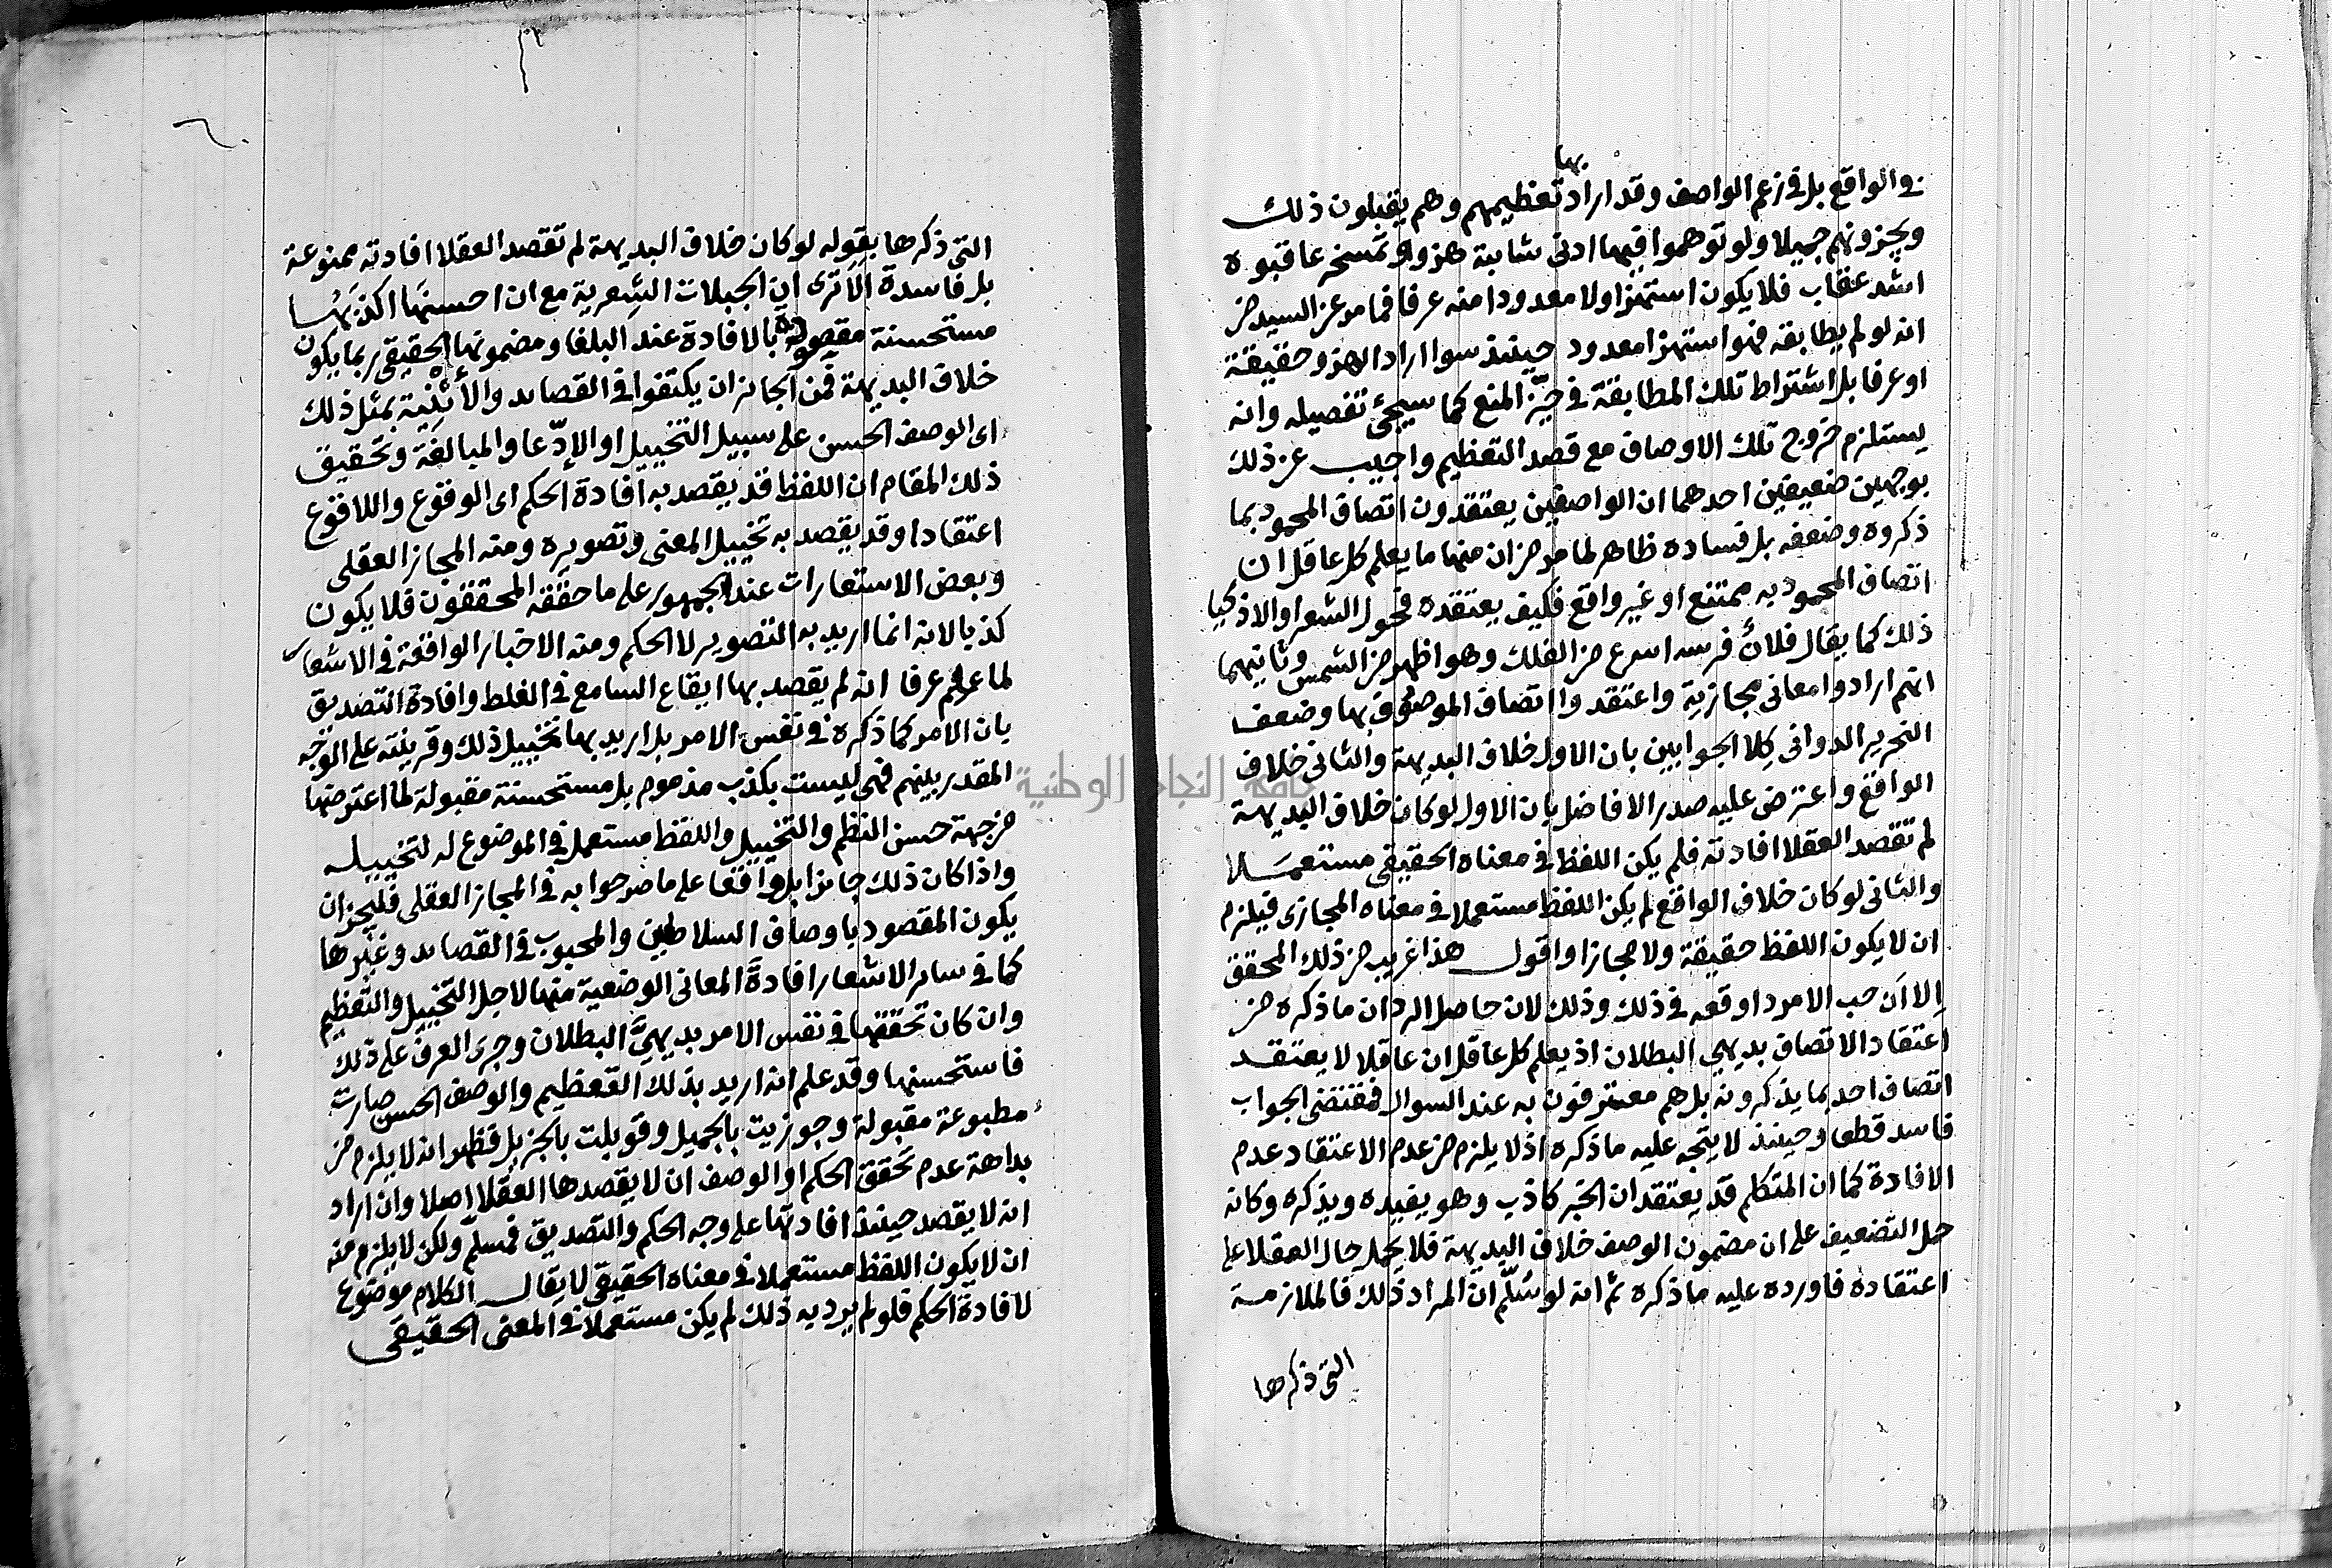 بها
في الواقع بل في زعم الواصف وقد اراد تعظيمهم وهم يقبلون ذلك
ويجزونهم جميلا ولو توهموا فيها ادنى شائبة هزو او تمسخر عاقبوه
اشد عقاب فلا يكون استهزاء ولا معدودا منه عرفا فما مر عن السيد من
انه لو لم يطابقه فهو استهزا معدود حينئذ سوا اراد الهزو حقيقة
او عرفا بل اشتراط تلك المطابقة في حيّز المنع كما سيجئ تفصيله وانه
يستلزم خروج تلك الاوصاف مع قصد التعظيم واجيب عن ذلك
بوجهين ضعيفين احدهما ان الواصفين يعتقدون اتصاف المحمود بما
ذكروه وضعفه بل فساده ظاهر لما مر من ان منها ما يعلم كل عاقل ان
اتصاف المحمود به ممتنع او غير واقع فكيف يعتقده فحول الشعرا والاذكيا
ذلك كما يقال فلانٌ فرسه اسرع من الفلك وهو اظهر من الشمس وثانيهما
انهم ارادوا معاني مجازية واعتقدوا اتصاف الموصوف بها وضعف
النحرير الدواني كِلا الجوابين بان الاول خلاف البديهة والثاني خلاف
الواقع واعترض عليه صدر الافاضل بان الاول لو كان خلاف البديهة
لم تقصد العقلا افادته فلم يكن اللفظ في معناه الحقيقي مستعملا
والثاني لو كان خلاف الواقع لم يكن اللفظ مستعملا في معناه المجازي فيلزم
ان لا يكون اللفظ حقيقة ولا مجازا واقول هذا غريب من ذلك المحقق
الا ان حب الامرد اوقعه في ذلك وذلك لان حاصل الرد ان ما ذكره من
اعتقاد الاتصاف بديهي البطلان اذ يعلم كل عاقل ان عاقلا لا يعتقد
اتصاف احد بما يذكرونه بل هم معترفون به عند السوال فمقتضى الجواب
فاسد قطعا وحينئذ لا يتجه عليه ما ذكره اذ لا يلزم من عدم الاعتقاد عدم
الافادة كما ان المتكلم قد يعتقد ان الخبر كاذب وهو يفيده ويذكره وكانه
حمل التضعيف على ان مضمون الوصف خلاف البديهة فلا يحمل حال العقلا على
اعتقاده فاورده عليه ما ذكره ثم انه لو سُلّم ان المراد ذلك فالملازمة
التي ذكرها
التي ذكرها بقوله لو كان خلاف البديهة لم تقصد العقلا افادته ممنوعة
بل فاسدة الا ترى ان الجبلات الشعرية مع ان احسنها اكذبها
مستحسنة مقصودة بالافادة عند البلغا ومضمونها الحقيقي ربما يكون
خلاف البديهة فمن الجائز ان يكتفوا في القصائد والأثنية بمثل ذلك
اى الوصف الحسن على سبيل التخييل او الإدّعا والمبالغة وتحقيق
ذلك المقام ان اللفظ قد يقصد به افادة الحكم اى الوقوع واللاوقوع
اعتقادا وقد يقصد به تخييل المعنى وتصويره ومنه المجاز العقلى
وبعض الاستعارات عند الجمهور على ما حققه المحققون فلا يكون
كذبا لانه انما اريد به التصوير لا الحكم ومنه الاخبار الواقعة في الاشعار
لما عرفتم عرفا انه لم يقصد بها ايقاع السامع في الغلط وافادة التصديق
بان الامر كما ذكره في نفس الامر بل اريد بها تخييل ذلك وقرينته على الوجه
المقدر بينهم فهي ليست بكذب مذموم بل مستحسنة مقبولة لما اعترضها
من جهة حسن النظم والتخييل واللفظ مستعمل في الموضوع له لتخييله
واذا كان ذلك جايزا بل واقعا على ما صرحوا به في المجاز العقلى فليجز ان
يكون المقصود باوصاف السلاطين والمحبوب في القصائد وغيرها
كما في سائر الاشعار افادةَ المعاني الوضعية منها لاجل التخييل والتعظيم
وان كان تحققها في نفس الامر بديهيَّ البطلان وجرى العرف على ذلك
فاستحسنها وقد علم انه اريد بذلك التعظيم والوصف الحسن صارت
مطبوعة مقبولة وجوزيت بالجميل وقوبلت بالجزيل فظهر انه لا يلزم من
بداهة عدم تحقق الحكم او الوصف ان لا يقصدها العقلا اصلا وان اراد
انه لا يقصد حينئذ افادتها على وجه الحكم والتصديق فمسلّم ولكن لا يلزم منه
ان لا يكون اللفظ مستعملا في معناه الحقيقي لا يقال الكلام موضوع
لافادة الحكم فلو لم يرد به ذلك لم يكن مستعملا في المعنى الحقيقي
جامعة النجاح الوطنية